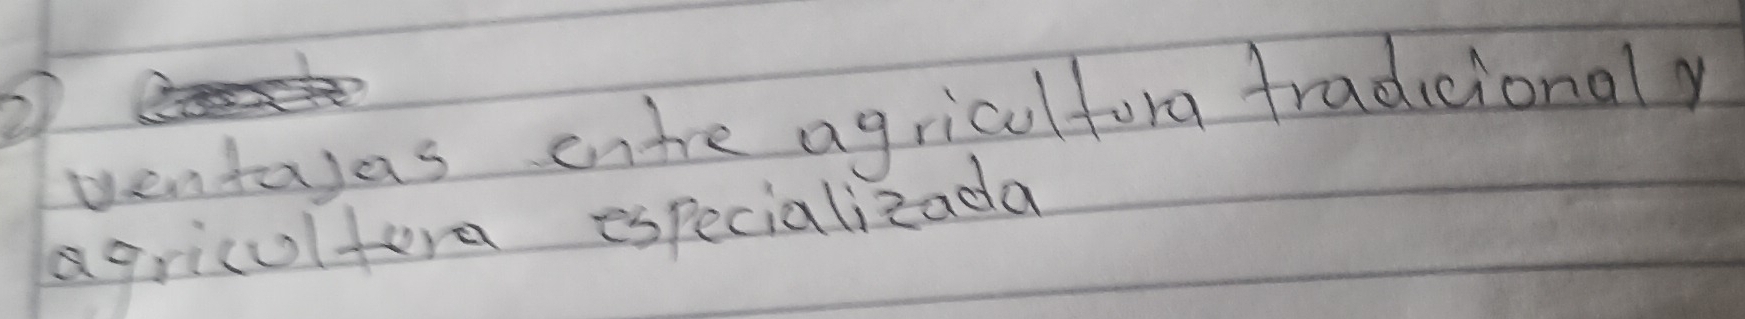 2)
ventajas entre agricultura tradicional y
agricultura especializada